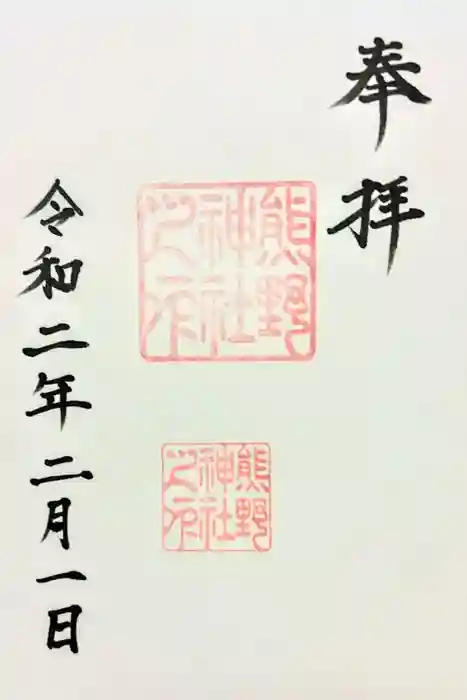 奉拝
熊野神社之印
熊野神社之印
令和二年二月一日